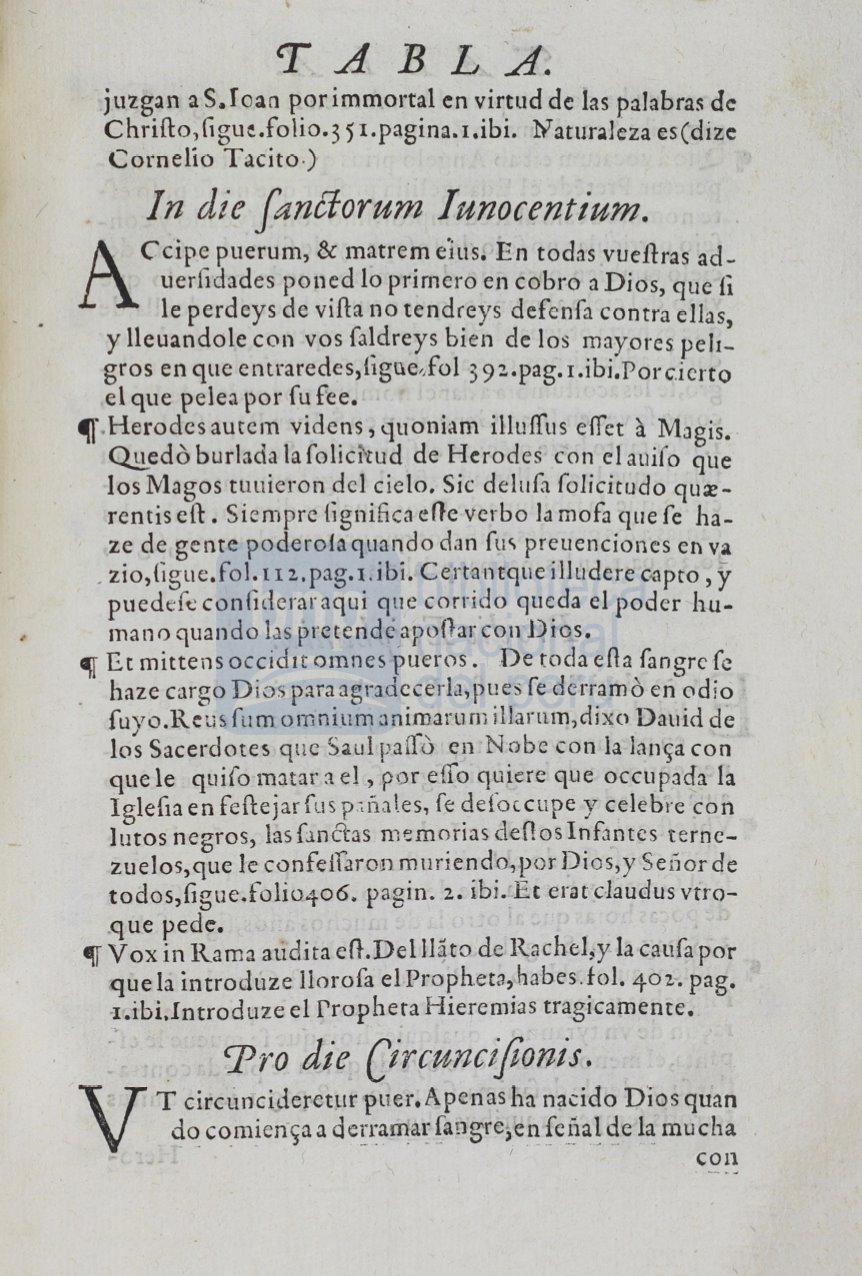 TABLA.
juzgan a S. Ioan por immortal en virtud de las palabras de
Christo, sigue.folio.351.pagina.1.ibi. Naturaleza es (dize
Cornelio Tacito.)
In die sanctorum Iunocentium.
ACcipe puerum, & matrem eius. En todas vuestras ad-
uersidades poned lo primero en cobro a Dios, que si
le perdeys de vista no tendreys defensa contra ellas,
y lleuandole con vos saldreys bien de los mayores peli-
gros en que entraredes, sigue, fol 392.pag.1.ibi. Por cierto
el que pelea por su fee.
¶ Herodes autem videns, quoniam illussus esset à Magis.
Quedò burlada la solicitud de Herodes con el auiso que
los Magos tuuieron del cielo. Sic delusa solicitudo quæ-
rentis est. Siempre significa este verbo la mofa que se ha-
ze de gente poderosa quando dan sus preuenciones en va
zio, sigue.fol.112.pag.1.ibi. Certantque illudere capto, y
puedese considerar aqui que corrido queda el poder hu-
mano quando las pretende apostar con Dios.
¶ Et mittens occidit omnes pueros. De toda esta sangre se
haze cargo Dios para agradecerla, pues se derramò en odio
suyo. Reus sum omnium animarum illarum, dixo Dauid de
los Sacerdotes que Saul passò en Nobe con la lança con
que le quiso matar a el, por esso quiere que occupada la
Iglesia en festejar sus pañales, se desoccupe y celebre con
lutos negros, las sanctas memorias destos Infantes terne-
zuelos, que le confessaron muriendo, por Dios, y Señor de
todos, sigue.folio406. pagin. 2. ibi. Et erat claudus vtro-
que pede.
¶ Vox in Rama audita est. Del llãto de Rachel, y la causa por
que la introduze llorosa el Propheta, habes.fol. 402. pag.
1.ibi. Introduze el Propheta Hieremias tragicamente.
Pro die Circuncisionis.
VT circuncideretur puer. Apenas ha nacido Dios quan
do comiença a derramar sangre, en señal de la mucha
con